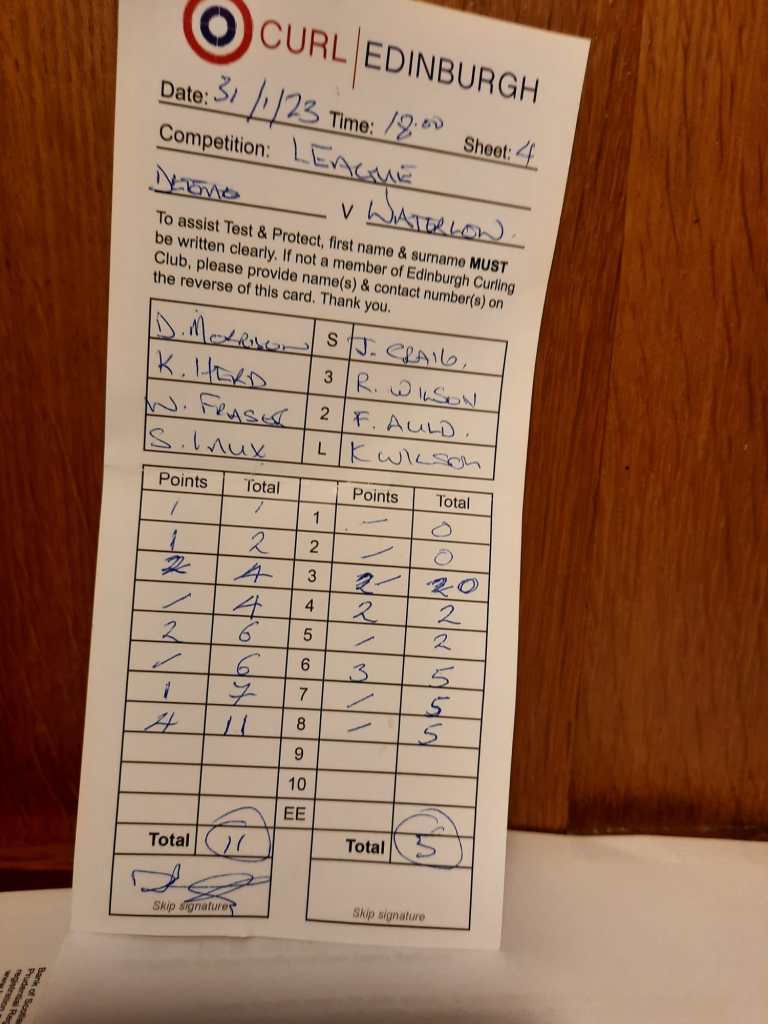 CURL EDINBURGH
Date: 31/1/23 Time: 18.00 Sheet: 4
Competition: LEAGUE
v WATERLOW.
To assist Test & Protect, first name & surname MUST
be written clearly. If not a member of Edinburgh Curling
Club, please provide name(s) & contact number(s) on
the reverse of this card. Thank you.
D. MORRISON S J. CRAIG.
K. HERD 3 R. WILSON
W. FRASER 2 F. AULD.
S. L K WILSON
Points Total Points Total
1 1 1 – 0
1 2 2 – 0
2 4 3 – 0
– 4 4 2 2
2 6 5 – 2
– 6 6 3 5
1 7 7 – 5
4 11 8 – 5
9
10
EE
Total 11 Total 5
Skip signature Skip signature
Bank of